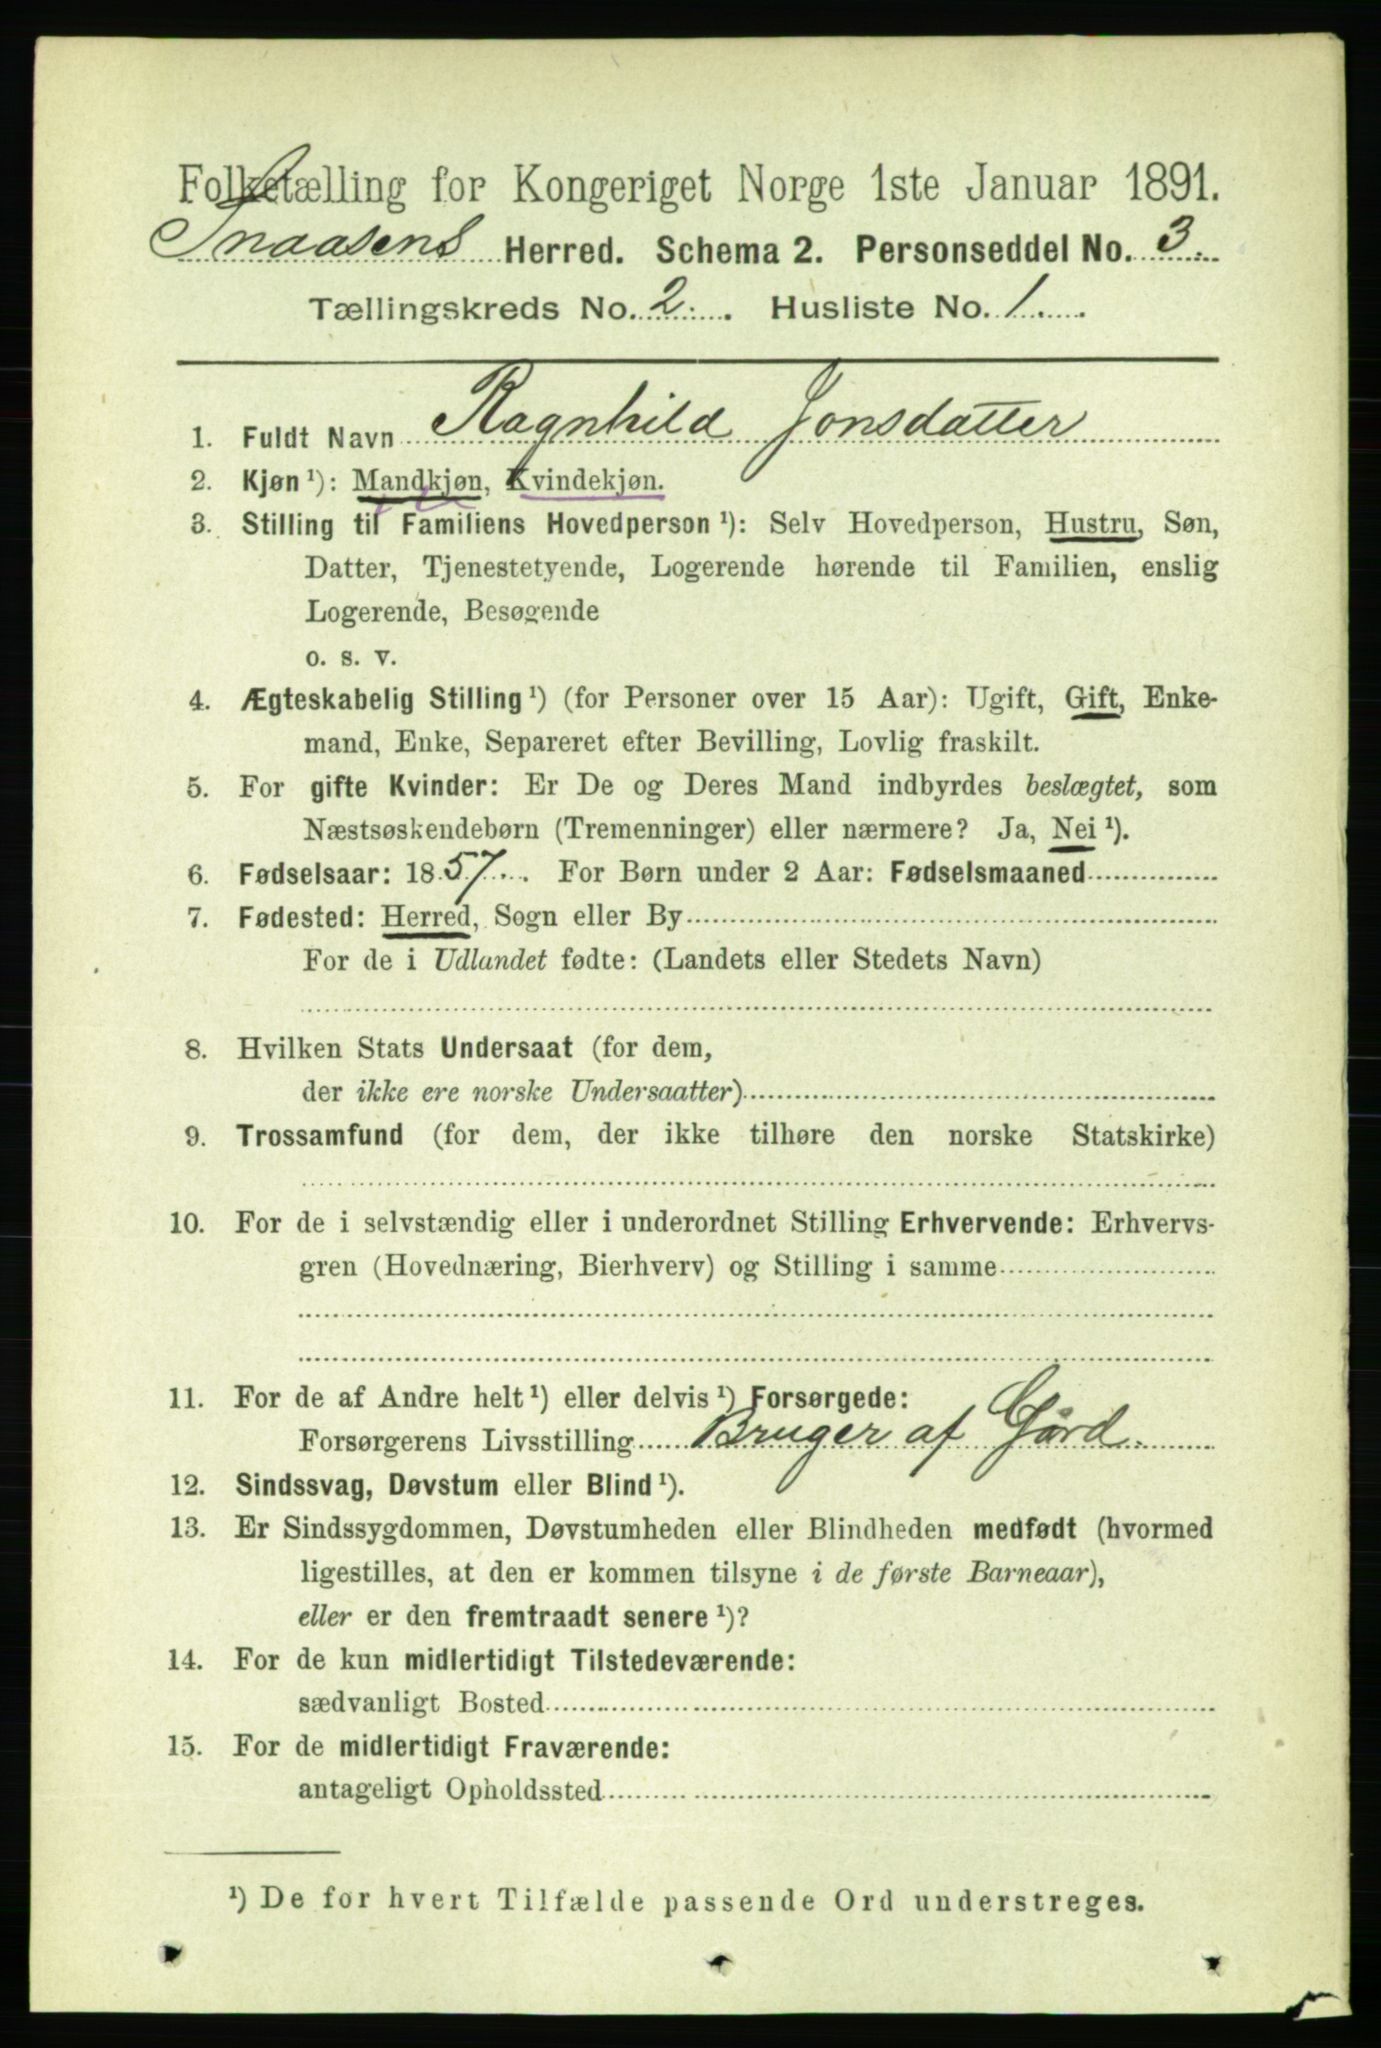 Folketælling for Kongeriget Norge 1ste Januar 1891.
Snaasens Herred. Schema 2. Personseddel No. 3.
Tællingskreds No. 2. Husliste No. 1.
1. Fuldt Navn Ragnhild Jonsdatter
2. Kjøn ¹): Mandkjøn, Kvindekjøn.
3. Stilling til Familiens Hovedperson ¹): Selv Hovedperson, Hustru, Søn,
Datter, Tjenestetyende, Logerende hørende til Familien, enslig
Logerende, Besøgende
o. s. v.
4. Ægteskabelig Stilling ¹) (for Personer over 15 Aar): Ugift, Gift, Enke-
mand, Enke, Separeret efter Bevilling, Lovlig fraskilt.
5. For gifte Kvinder: Er De og Deres Mand indbyrdes beslægtet, som
Næstsøskendebørn (Tremenninger) eller nærmere? Ja, Nei ¹).
6. Fødselsaar: 1857. For Børn under 2 Aar: Fødselsmaaned
7. Fødested: Herred, Sogn eller By
For de i Udlandet fødte: (Landets eller Stedets Navn)
8. Hvilken Stats Undersaat (for dem,
der ikke ere norske Undersaatter)
9. Trossamfund (for dem, der ikke tilhøre den norske Statskirke)
10. For de i selvstændig eller i underordnet Stilling Erhvervende: Erhvervs-
gren (Hovednæring, Bierhverv) og Stilling i samme
11. For de af Andre helt ¹) eller delvis ¹) Forsørgede:
Forsørgerens Livsstilling Bruger af Gård.
12. Sindssvag, Døvstum eller Blind ¹).
13. Er Sindssygdommen, Døvstumheden eller Blindheden medfødt (hvormed
ligestilles, at den er kommen tilsyne i de første Barneaar),
eller er den fremtraadt senere ¹)?
14. For de kun midlertidigt Tilstedeværende:
sædvanligt Bosted
15. For de midlertidigt Fraværende:
antageligt Opholdssted
¹) De for hvert Tilfælde passende Ord understreges.